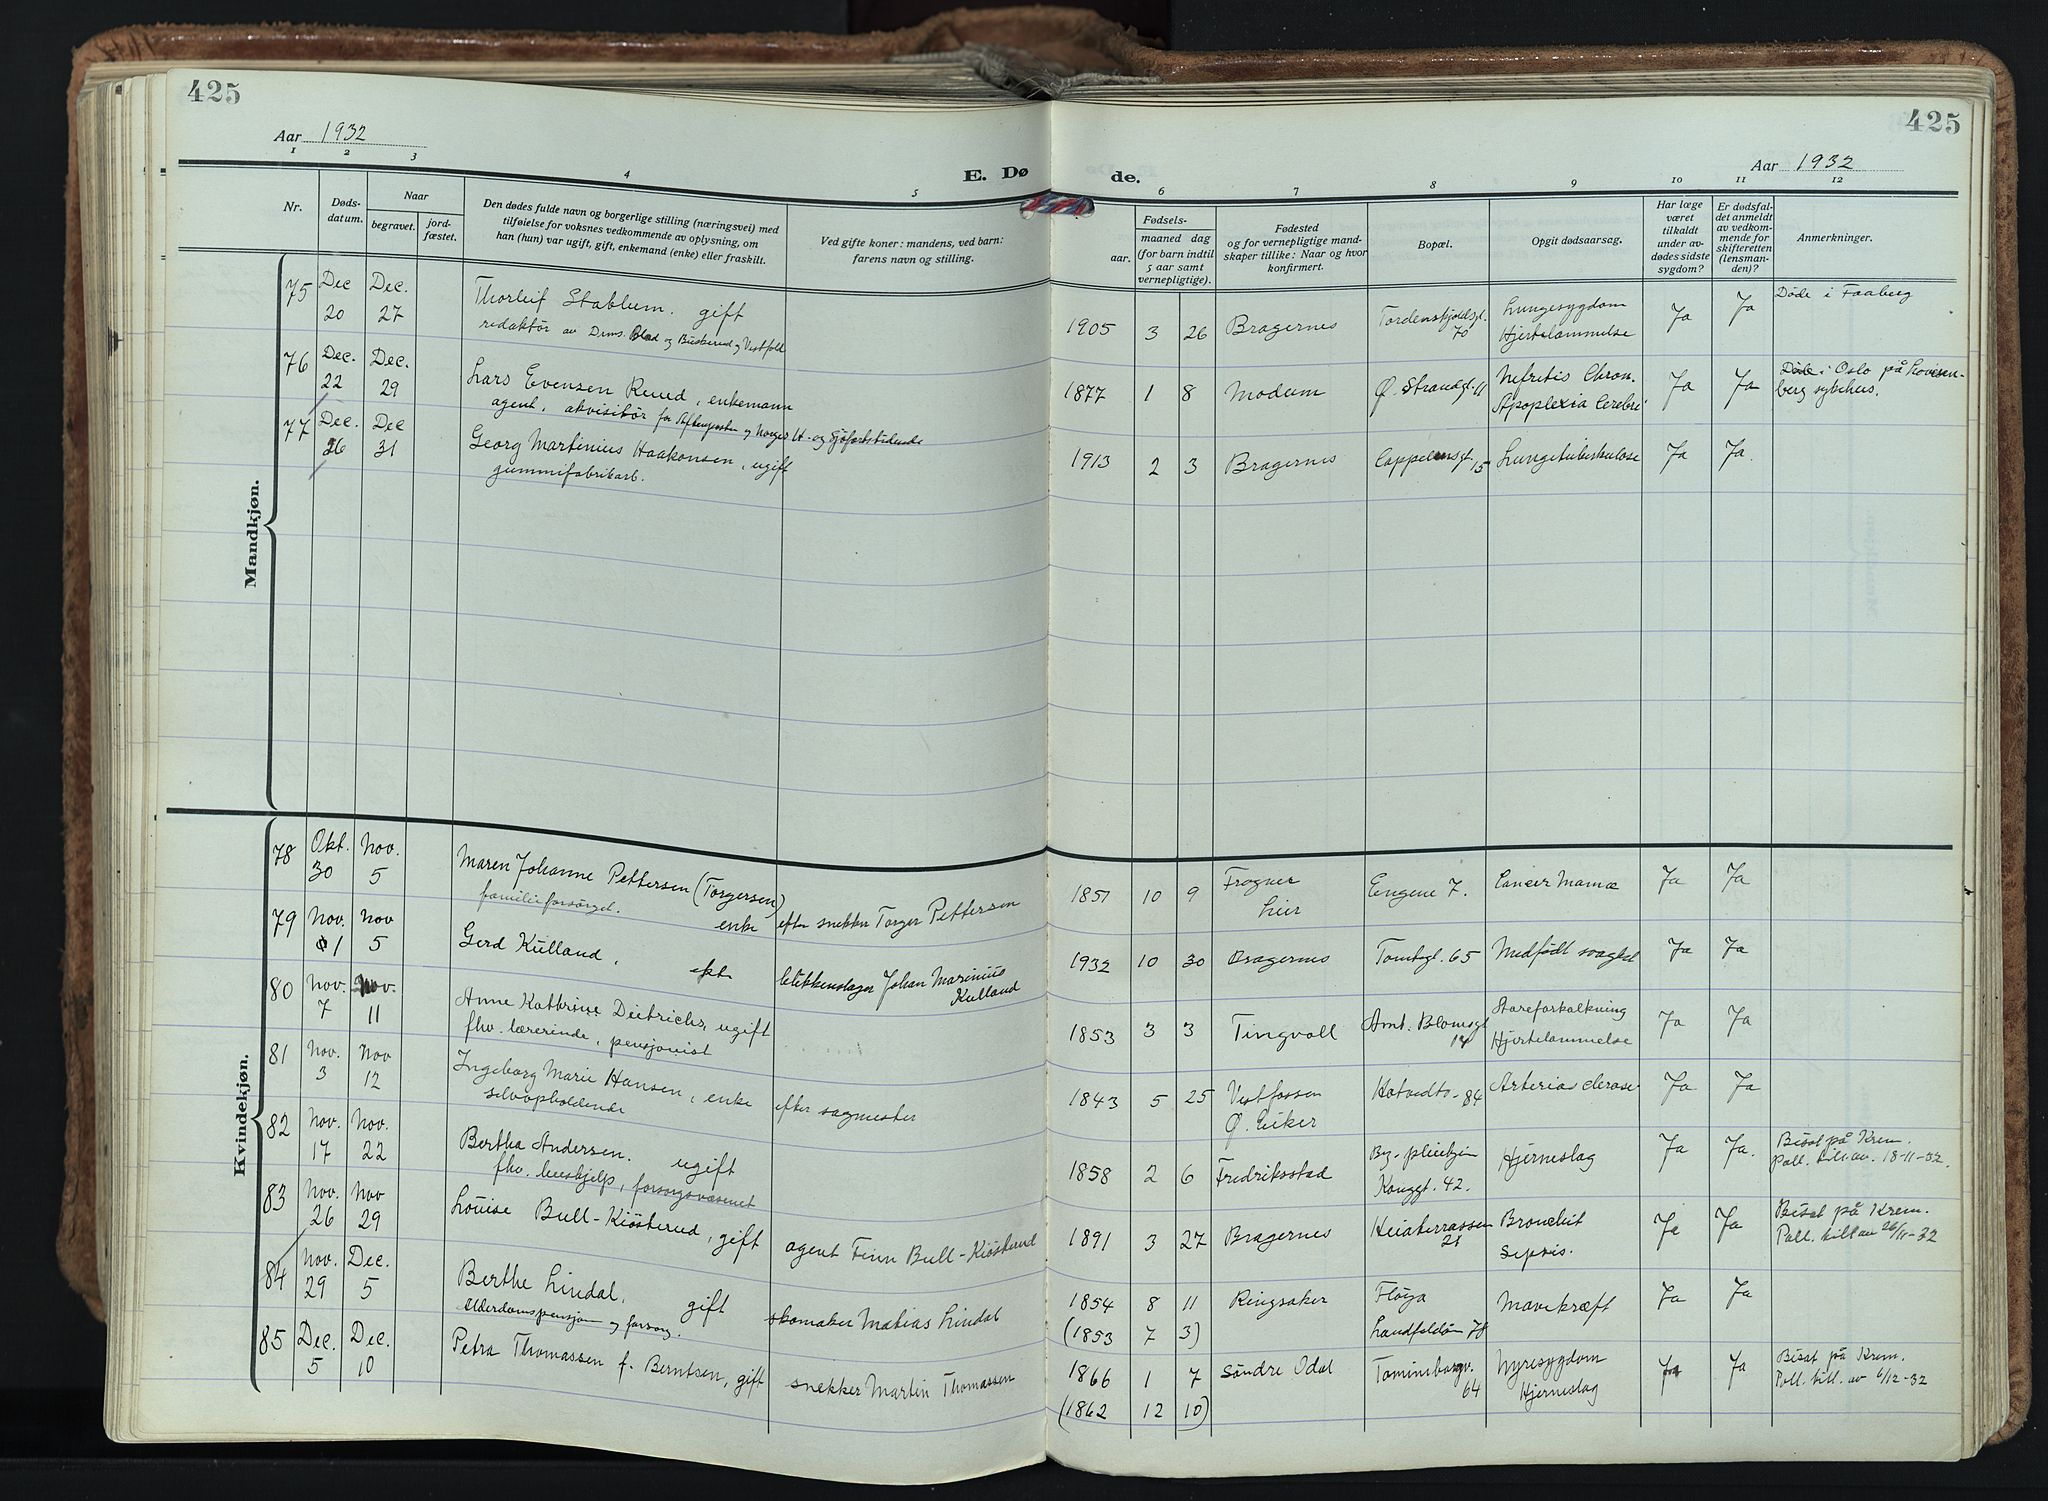 425
425
Aar 1932
Aar 1932
E. Dø
de.
1 2 3 4 5 6 7 8 9 10 11 12
Nr.
Døds-
datum.
Naar
begravet.
jord-
fæstet.
Den dødes fulde navn og borgerlige stilling (næringsvei) med
tilføielse for voksnes vedkommende av oplysning, om
han (hun) var ugift, gift, enkemand (enke) eller fraskilt.
Ved gifte koner: mandens, ved barn:
farens navn og stilling.
Fødsels-
aar.
maaned dag
(for barn indtil
5 aar samt
vernepligtige).
Fødested
og for vernepligtige mand-
skaper tillike: Naar og hvor
konfirmert.
Bopæl.
Opgit dødsaarsag.
Har læge
været
tilkaldt
under av-
dødes sidste
sygdom?
Er dødsfal-
det anmeldt
av vedkom-
mende for
skifteretten
(lensman-
den)?
Anmerkninger.
Mandkjøn.
75 Dec 20 Dec. 27 Thorleif Stablum. gift
redaktør av Dms. Blad og Buskerud og Vestfold
1905 3 26 Bragernes Tordenskjoldsgt. 70 Lungesygdom
Hjertelammelse Ja Ja Døde i Faaberg
76 Dec. 22 Dec. 29 Lars Evensen Ruud, enkemann
agent, akvisitør for Aftenposten og Norges H- og Sjøfartstidende
1877 1 8 Modum Ø. Strandgt. 11 Nefritis Chron.
Apoplexia Cerebri Ja Ja Døde i Oslo på Lovisen-
berg sykehus.
77 Dec. 26 Dec 31 Georg Martinius Haakonsen, ugift
gummifabrikarb.
1913 2 3 Bragernes Cappelensgt. 15 Lungetuberkulose Ja Ja.
Kvindekjøn.
78 Okt. 30 Nov. 5 Maren Johanne Pettersen (Torgersen)
familieforsørget. enke efter snekker Torger Pettersen
1851 10 9 Frogner
Lier Engene 7. Cancer Mamæ Ja Ja
79 Nov. 1 Nov 5 Gerd Kulland, ekte blikkenslager Johan Marinius
Kulland
1932 10 30 Bragernes Tomtegt. 65 Medfødt svaghet Ja Ja
80 Nov. 7 Nov. 11 Anne Kathrine Deitrichs, ugift
fhv. lærerinde, pensjonist
1853 3 3 Tingvoll Amt. Blomsgt. 14 Aareforkalkning
Hjertelammelse Ja Ja
81 Nov. 3 Nov 12 Ingeborg Marie Hansen, enke efter sagmester
selvopholdende
1843 5 25 Vestfossen
Ø. Eiker 84 Ja Ja
82 Nov. 17 Nov. 22 Bertha Andersen. ugift
fhv. , forsorgsvæsenet
1858 2 6 Fredriksstad By. pleiehjem
Konggt. 42. Hjerneslag Ja Ja. Bisat på Krem.
Poll. till av. 18-11-32.
83 Nov. 26 Nov 29 Louise Bull-Kiøsterud, gift agent Finn Bull-Kiøsterud
1891 3 27 Bragernes Heiaterrassen 21 Bronchit
Sepsis. Ja Ja Bisat på Krem.
Poll. till av 26/11-32
84 Nov. 29 Dec. 5 Berthe Lindal, gift skomaker Matias Lindal
Alderdomspensjon og forsorg.
1854 8 11
(1853 7 3) Ringsaker Fløya
Landfaldøen 78 Mavekræft Ja Ja
85 Dec. 5 Dec. 10 Petra Thomassen f. Berntsen, gift snekker Martin Thomassen
1866 1 7
(1862 12 10) Søndre Odal Tomineborgv. 64 Nyresygdom
Hjerneslag Ja Ja Bisat på Krem.
Poll. till. av 6/12-32